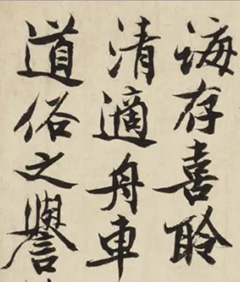 誨存喜聆
清適舟車
道俗之譽